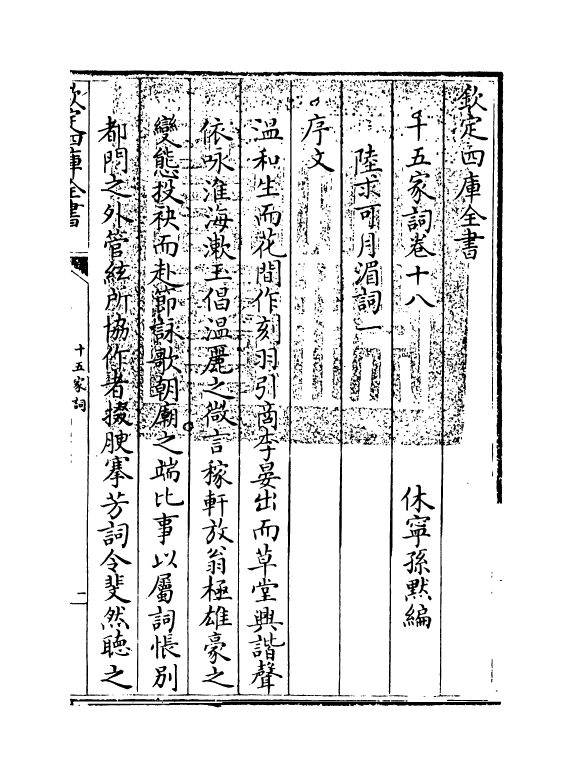 欽定四庫全書
十五家詞卷十八 休寧孫默編
陸求可月湄詞一
序文
温和生而花間作刻羽引商李晏出而草堂興諧聲
依咏淮海漱玉倡温麗之微言稼軒放翁極雄豪之
變態投袂而赴節詠歌朝廟之端比事以屬詞悵別
都門之外管絃所協作者掇腴搴芳詞令斐然聽之
欽定四庫全書
十五家詞